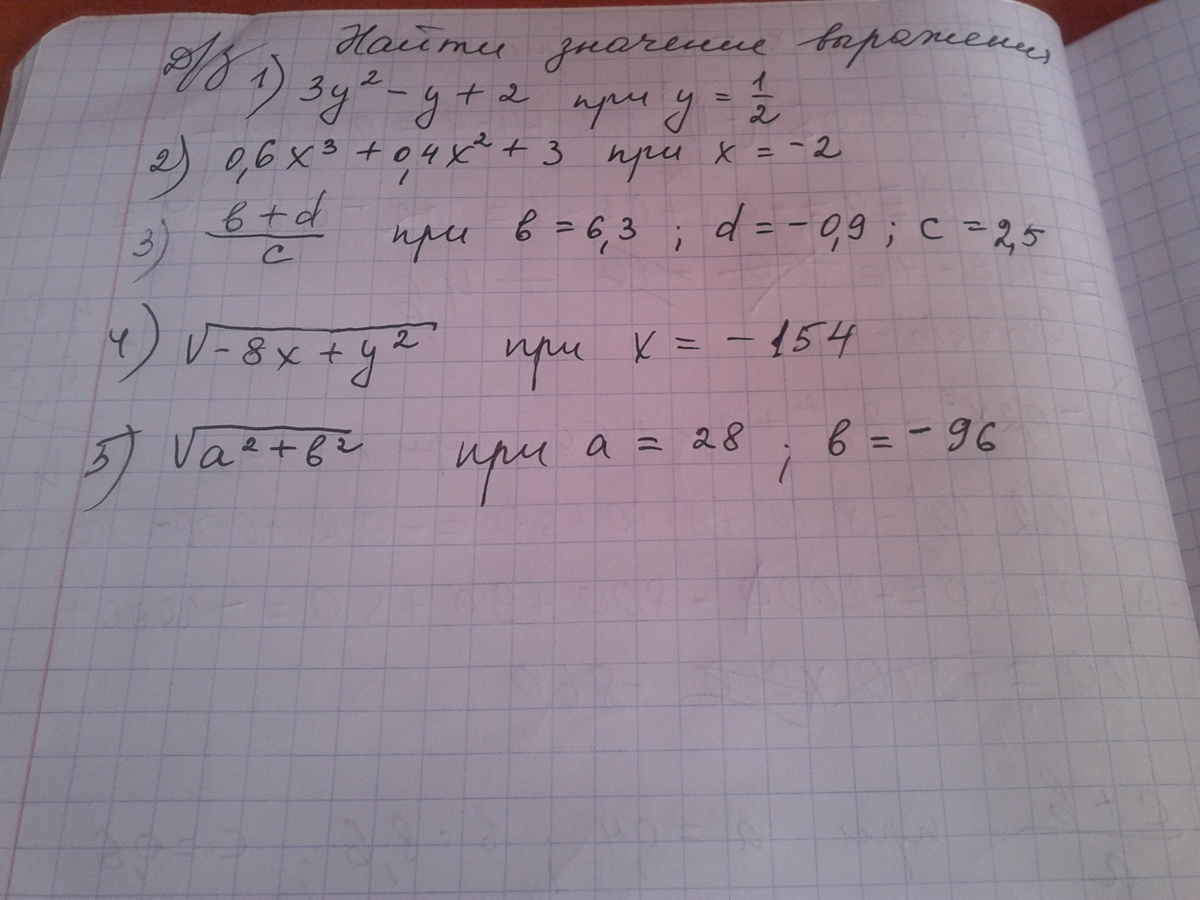 Д/з Найти значение выражения
1) 3y² - y + 2 при y = 1/2
2) 0,6x³ + 0,4x² + 3 при x = -2
3) (в + d)/c при в = 6,3 ; d = -0,9 ; c = 2,5
4) √(-8x + y²) при x = -154
5) √(a² + в²) при a = 28 ; в = -96